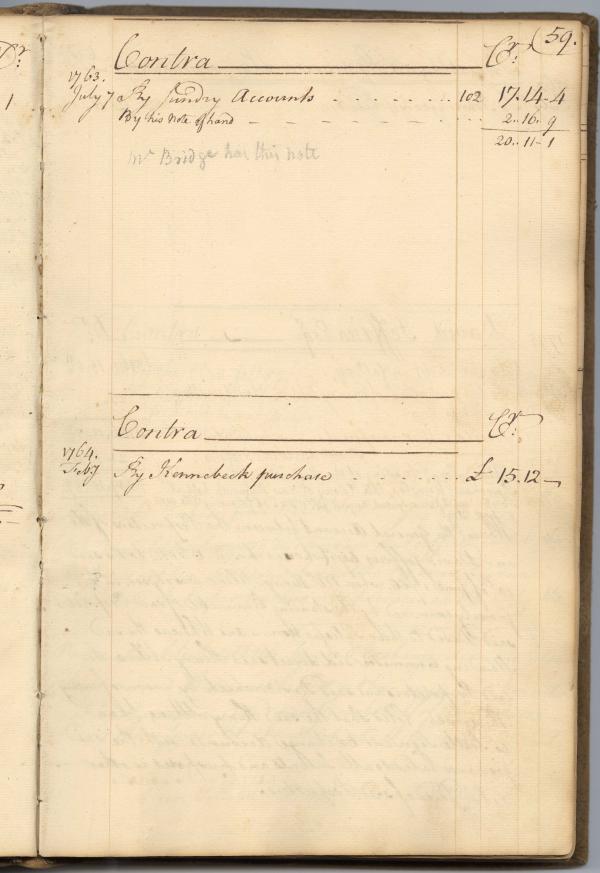 (59.
Contra Cr:
1763.
July 7 By Sundry Accounts 102 17..14..4
By his note of hand 2..16..9
20..11..1
Mr Bridge has this note
Contra Cr:
1764.
Feby By Kennebeck purchase £ 15..12..—